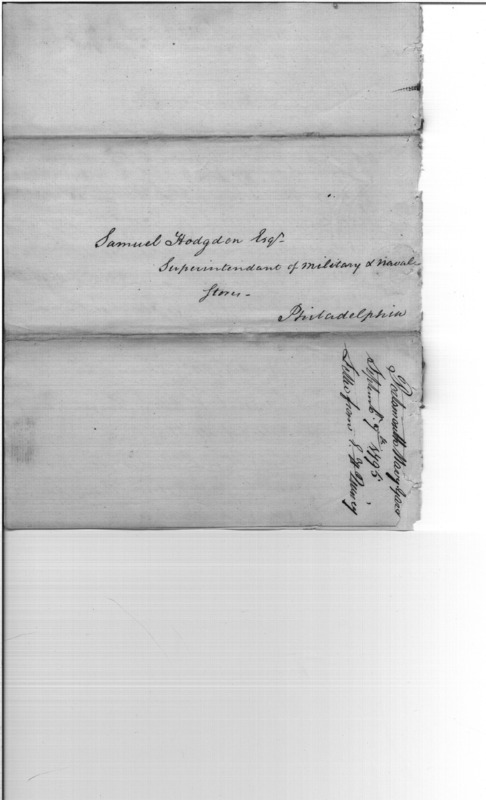 Samuel Hodgdon Esqr.
Superintendant of military & naval
Stores -
Philadelphia
Portsmouth Navy Yard
Septemb. 9th 1795
Letter from